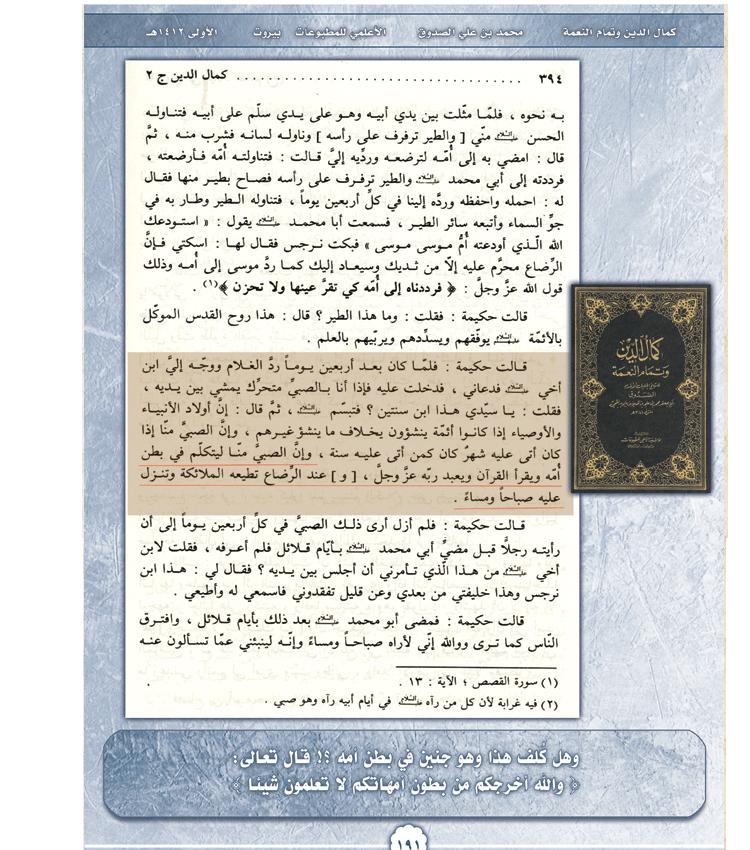 كمال الدين وتمام النعمة محمد بن علي الصدوق الأعلمي للمطبوعات بيروت الأولى ١٤١٢هـ
٣٩٤ . . . . . . . . . . . . . . . . . . . . . . . . . . . . . . . . . . . كمال الدين ج ٢
به نحوه ، فلمّا مثلت بين يدي أبيه وهو على يدي سلّم على أبيه فتناوله
الحسن عليه السلام منّي [ والطير ترفرف على رأسه ] وناوله لسانه فشرب منه ، ثمَّ
قال : امضي به إلى أُمّه لترضعه وردِّيه إليَّ قالت : فتناولته أُمّه فأرضعته ،
فرددته إلى أبي محمد عليه السلام والطير ترفرف على رأسه فصاح بطير منها فقال
له : احمله واحفظه وردَّه إلينا في كلِّ أربعين يوماً ، فتناوله الطير وطار به في
جوِّ السماء وأتبعه سائر الطير ، فسمعت أبا محمد عليه السلام يقول : « استودعك
الله الَّذي أودعته أُمُّ موسى موسى » فبكت نرجس فقال لها : اسكتي فإنَّ
الرِّضاع محرَّم عليه إلّا من ثديك وسيعاد إليك كما ردَّ موسى إلى أُمه وذلك
قول الله عزَّ وجلَّ : ﴿ فرددناه إلى أُمّه كي تقرَّ عينها ولا تحزن ﴾(١) .
قالت حكيمة : فقلت : وما هذا الطير ؟ قال : هذا روح القدس الموكّل
بالأئمّة عليه السلام يوفّقهم ويسدِّدهم ويربّيهم بالعلم .
قالت حكيمة : فلمّا كان بعد أربعين يوماً ردَّ الغلام ووجّه إليَّ ابن
أخي عليه السلام فدعاني ، فدخلت عليه فإذا أنا بالصبيِّ متحرِّك يمشي بين يديه ،
فقلت : يا سيّدي هذا ابن سنتين ؟ فتبسّم عليه السلام ، ثمَّ قال : إنَّ أولاد الأنبياء
والأوصياء إذا كانوا أئمّة ينشؤون بخلاف ما ينشؤ غيرهم ، وإنَّ الصبيَّ منّا إذا
كان أتى عليه شهرٌ كان كمن أتى عليه سنة ، وإنَّ الصبيَّ منّا ليتكلّم في بطن
أُمّه ويقرأ القرآن ويعبد ربّه عزَّ وجلَّ ، [ و ] عند الرِّضاع تطيعه الملائكة وتنزل
عليه صباحاً ومساءً .
قالت حكيمة : فلم أزل أرى ذلك الصبيَّ في كلِّ أربعين يوماً إلى أن
رأيته رجلًا قبل مضيِّ أبي محمد عليه السلام بأيّام قلائل فلم أعرفه ، فقلت لابن
أخي عليه السلام من هذا الّذي تأمرني أن أجلس بين يديه ؟ فقال لي : هذا ابن
نرجس وهذا خليفتي من بعدي وعن قليل تفقدوني فاسمعي له وأطيعي .
قالت حكيمة : فمضى أبو محمد عليه السلام بعد ذلك بأيام قلائل ، وافترق
النّاس كما ترى ووالله إنّي لأراه صباحاً ومساءً وإنّه لينبئني عمّا تسألون عنه
(١) سورة القصص ؛ الآية : ١٣ .
(٢) فيه غرابة لأن كل من رآه عليه السلام في أيام أبيه رآه وهو صبي .
كمال الدين
وتمام النعمة
الصدوق
وهل كلف هذا وهو جنين في بطن أمه ؟! قال تعالى:
﴿ والله أخرجكم من بطون أمهاتكم لا تعلمون شيئا ﴾
١٩١